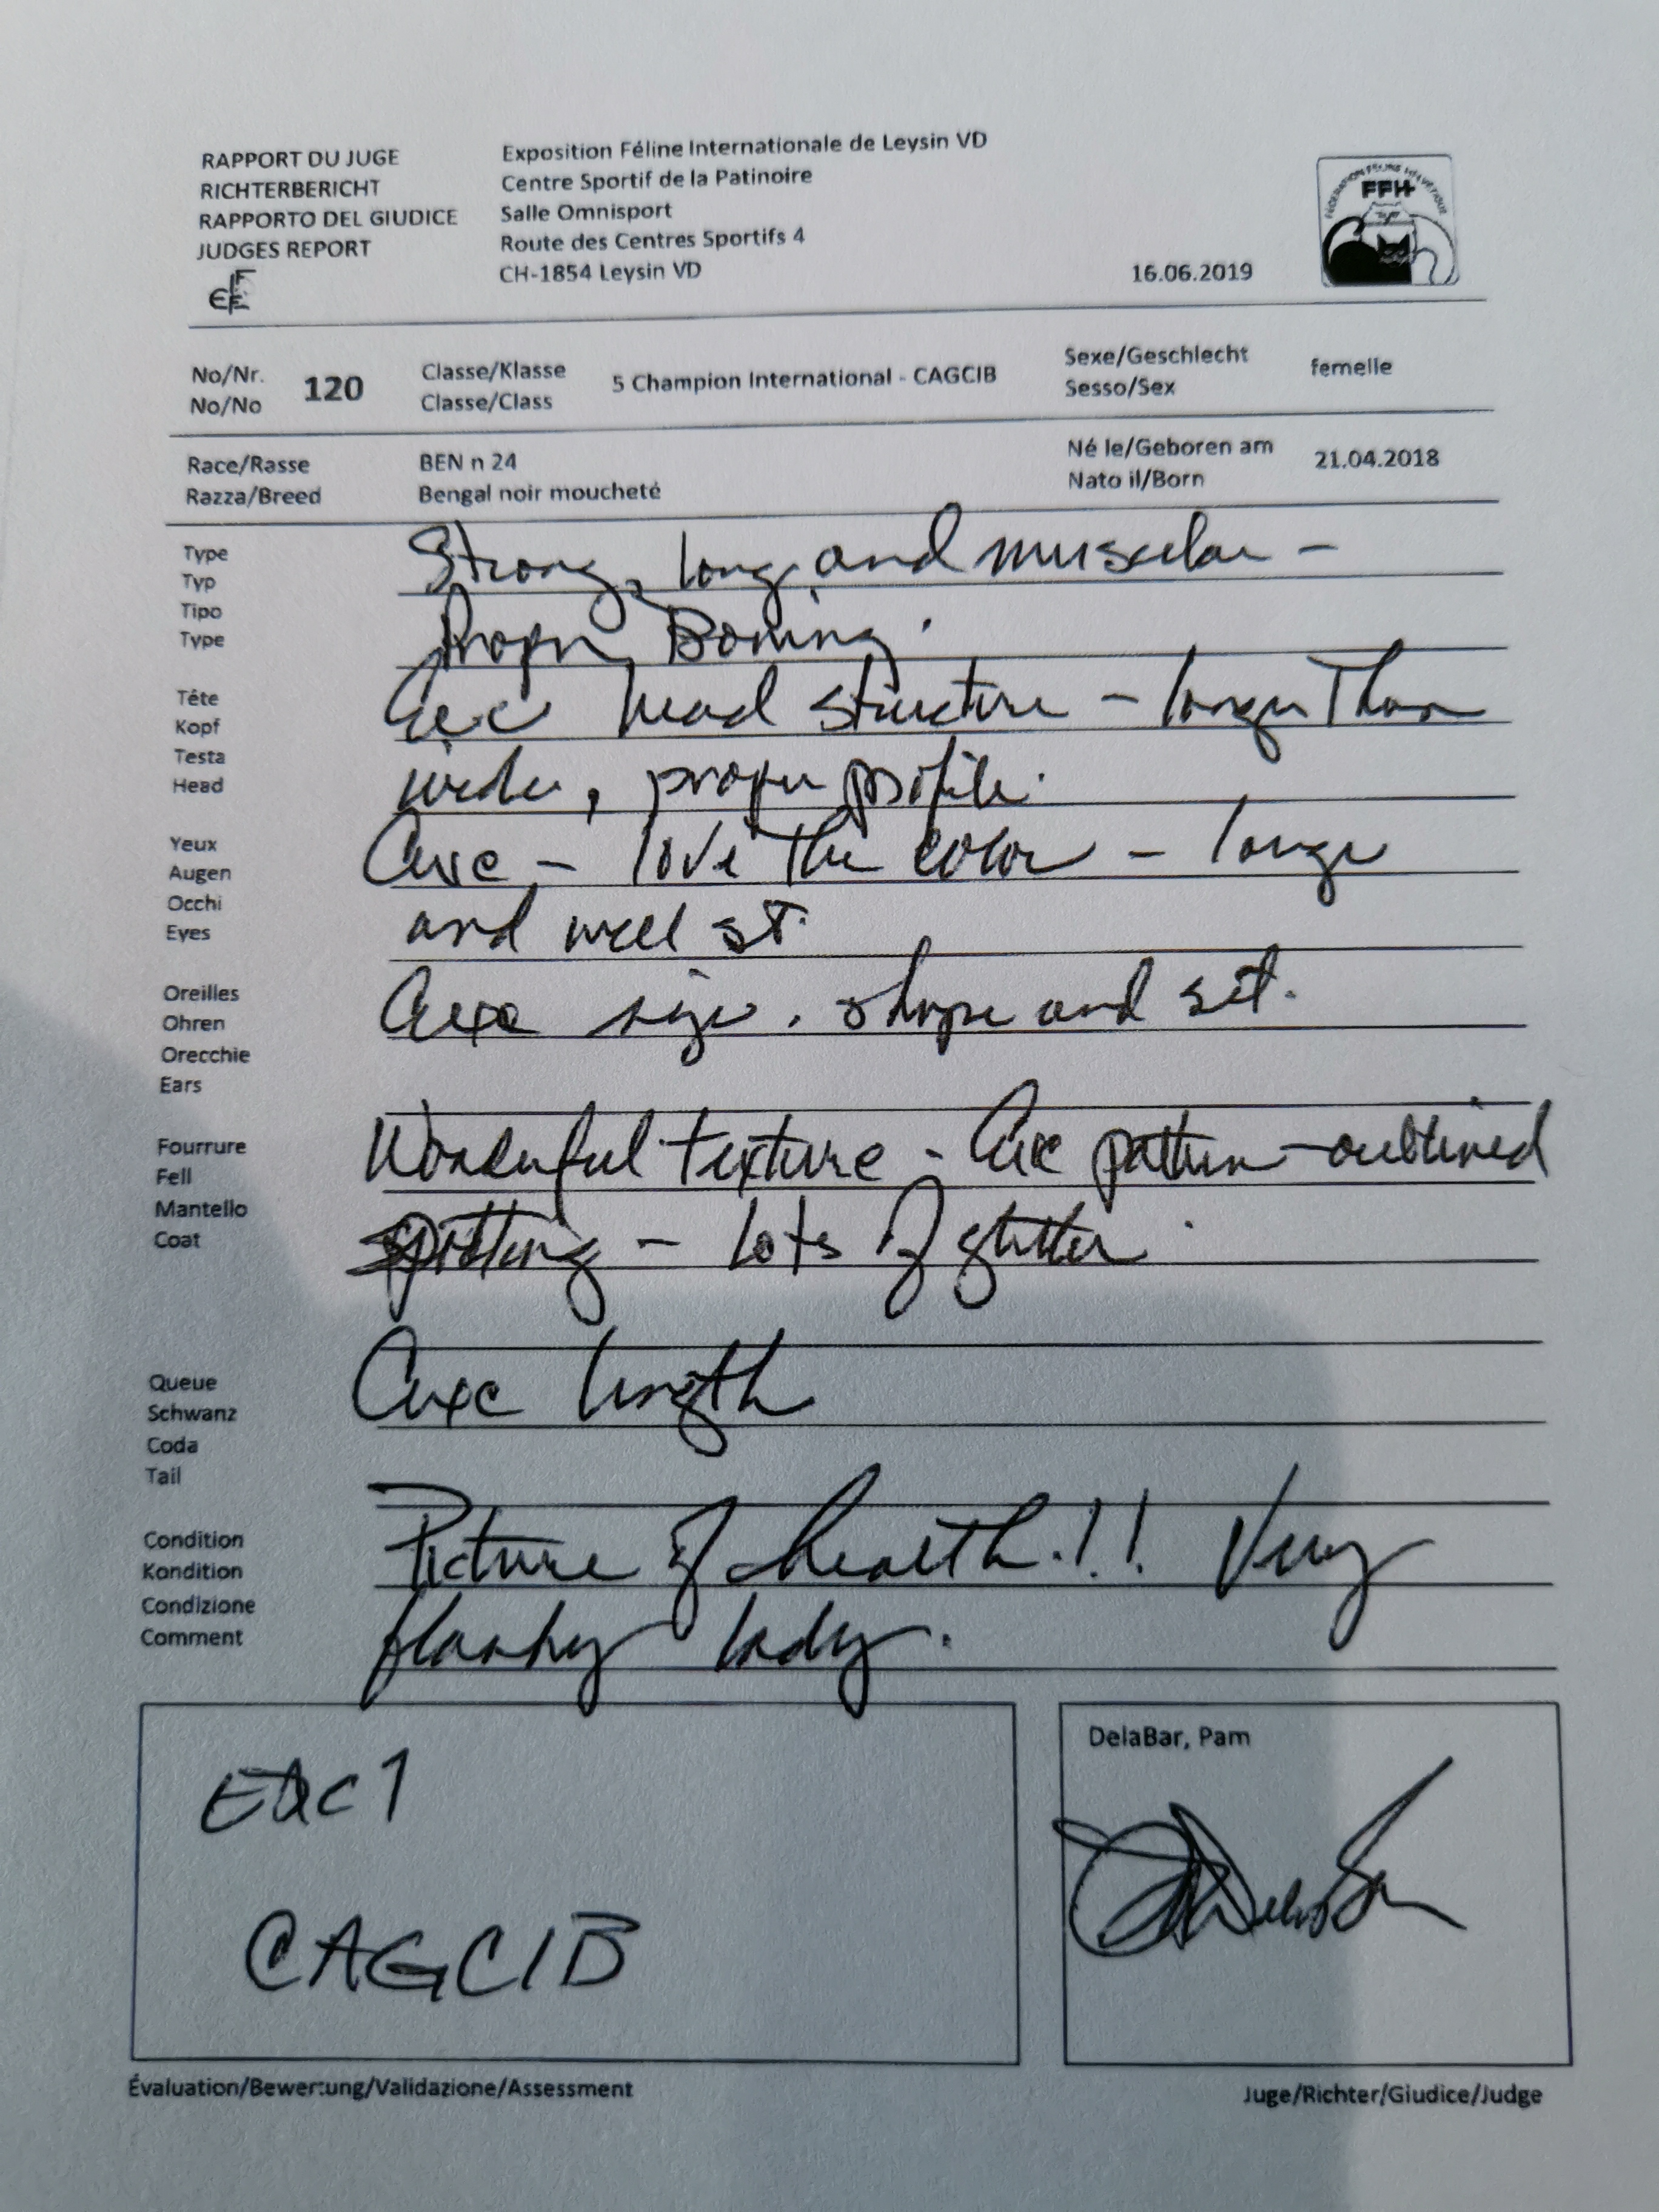 RAPPORT DU JUGE
RICHTERBERICHT
RAPPORTO DEL GIUDICE
JUDGES REPORT
Exposition Féline Internationale de Leysin VD
Centre Sportif de la Patinoire
Salle Omnisport
Route des Centres Sportifs 4
CH-1854 Leysin VD
16.06.2019
FEDERATION FELINE HELVETIQUE
FFH
No/Nr.
No/No
120
Classe/Klasse
Classe/Class
5 Champion International - CAGCIB
Sexe/Geschlecht
Sesso/Sex
femelle
Race/Rasse
Razza/Breed
BEN n 24
Bengal noir moucheté
Né le/Geboren am
Nato il/Born
21.04.2018
Type
Typ
Tipo
Type
Strong, long, and muscular -
Proper Boning.
Tête
Kopf
Testa
Head
head structure - longer Than
wide, proper profile.
Yeux
Augen
Occhi
Eyes
- love the color - large
and well set.
Oreilles
Ohren
Orecchie
Ears
size, shape and set.
Fourrure
Fell
Mantello
Coat
Wonderful texture - pattern - outlined
spotting - lots of glitter.
Queue
Schwanz
Coda
Tail
length
Condition
Kondition
Condizione
Comment
Picture of health!! Very
flashy lady.
CAGCIB
DelaBar, Pam
Évaluation/Bewertung/Validazione/Assessment
Juge/Richter/Giudice/Judge